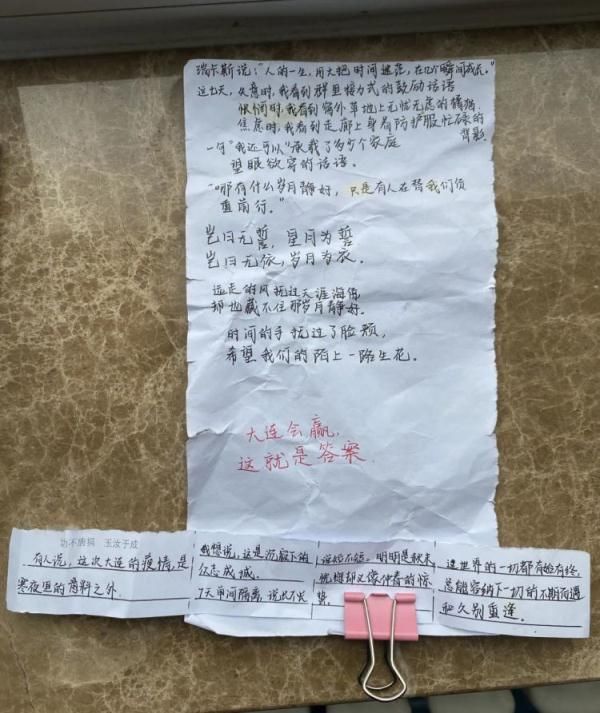 瑞卡斯说:“人的一生,用大把时间迷茫,在几个瞬间成长。”
这七天,久意时,我看到群里接力式的鼓励话语
惆怅时,我看到窗外草地上无忧无虑的橘猫
焦虑时,我看到走廊上身着防护服忙碌的
背影
一句“我还可以”承载了多少个家庭
望眼欲穿的话语。
“哪有什么岁月静好,只是有人在替我们负
重前行。”
岂曰无誓,星月为誓
岂曰无依,岁月为衣。
远走的风抚过天涯海角
却也藏不住那岁月静好。
时间的手抚过了脸颊,
希望我们的陌上一路生花。
大连会赢,
这就是答案
功不唐捐 玉汝于成
有人说,这次大连的疫情是
寒夜里的意料之外
我想说,这是沉寂下的
众志成城。
7天串间隔离,说长不长
说短不短。明明是秋末
恍惚却又像仲春的惊
蛰
这世界的一切都有始有终,
总能容纳下一切的不期而遇
和久别重逢。